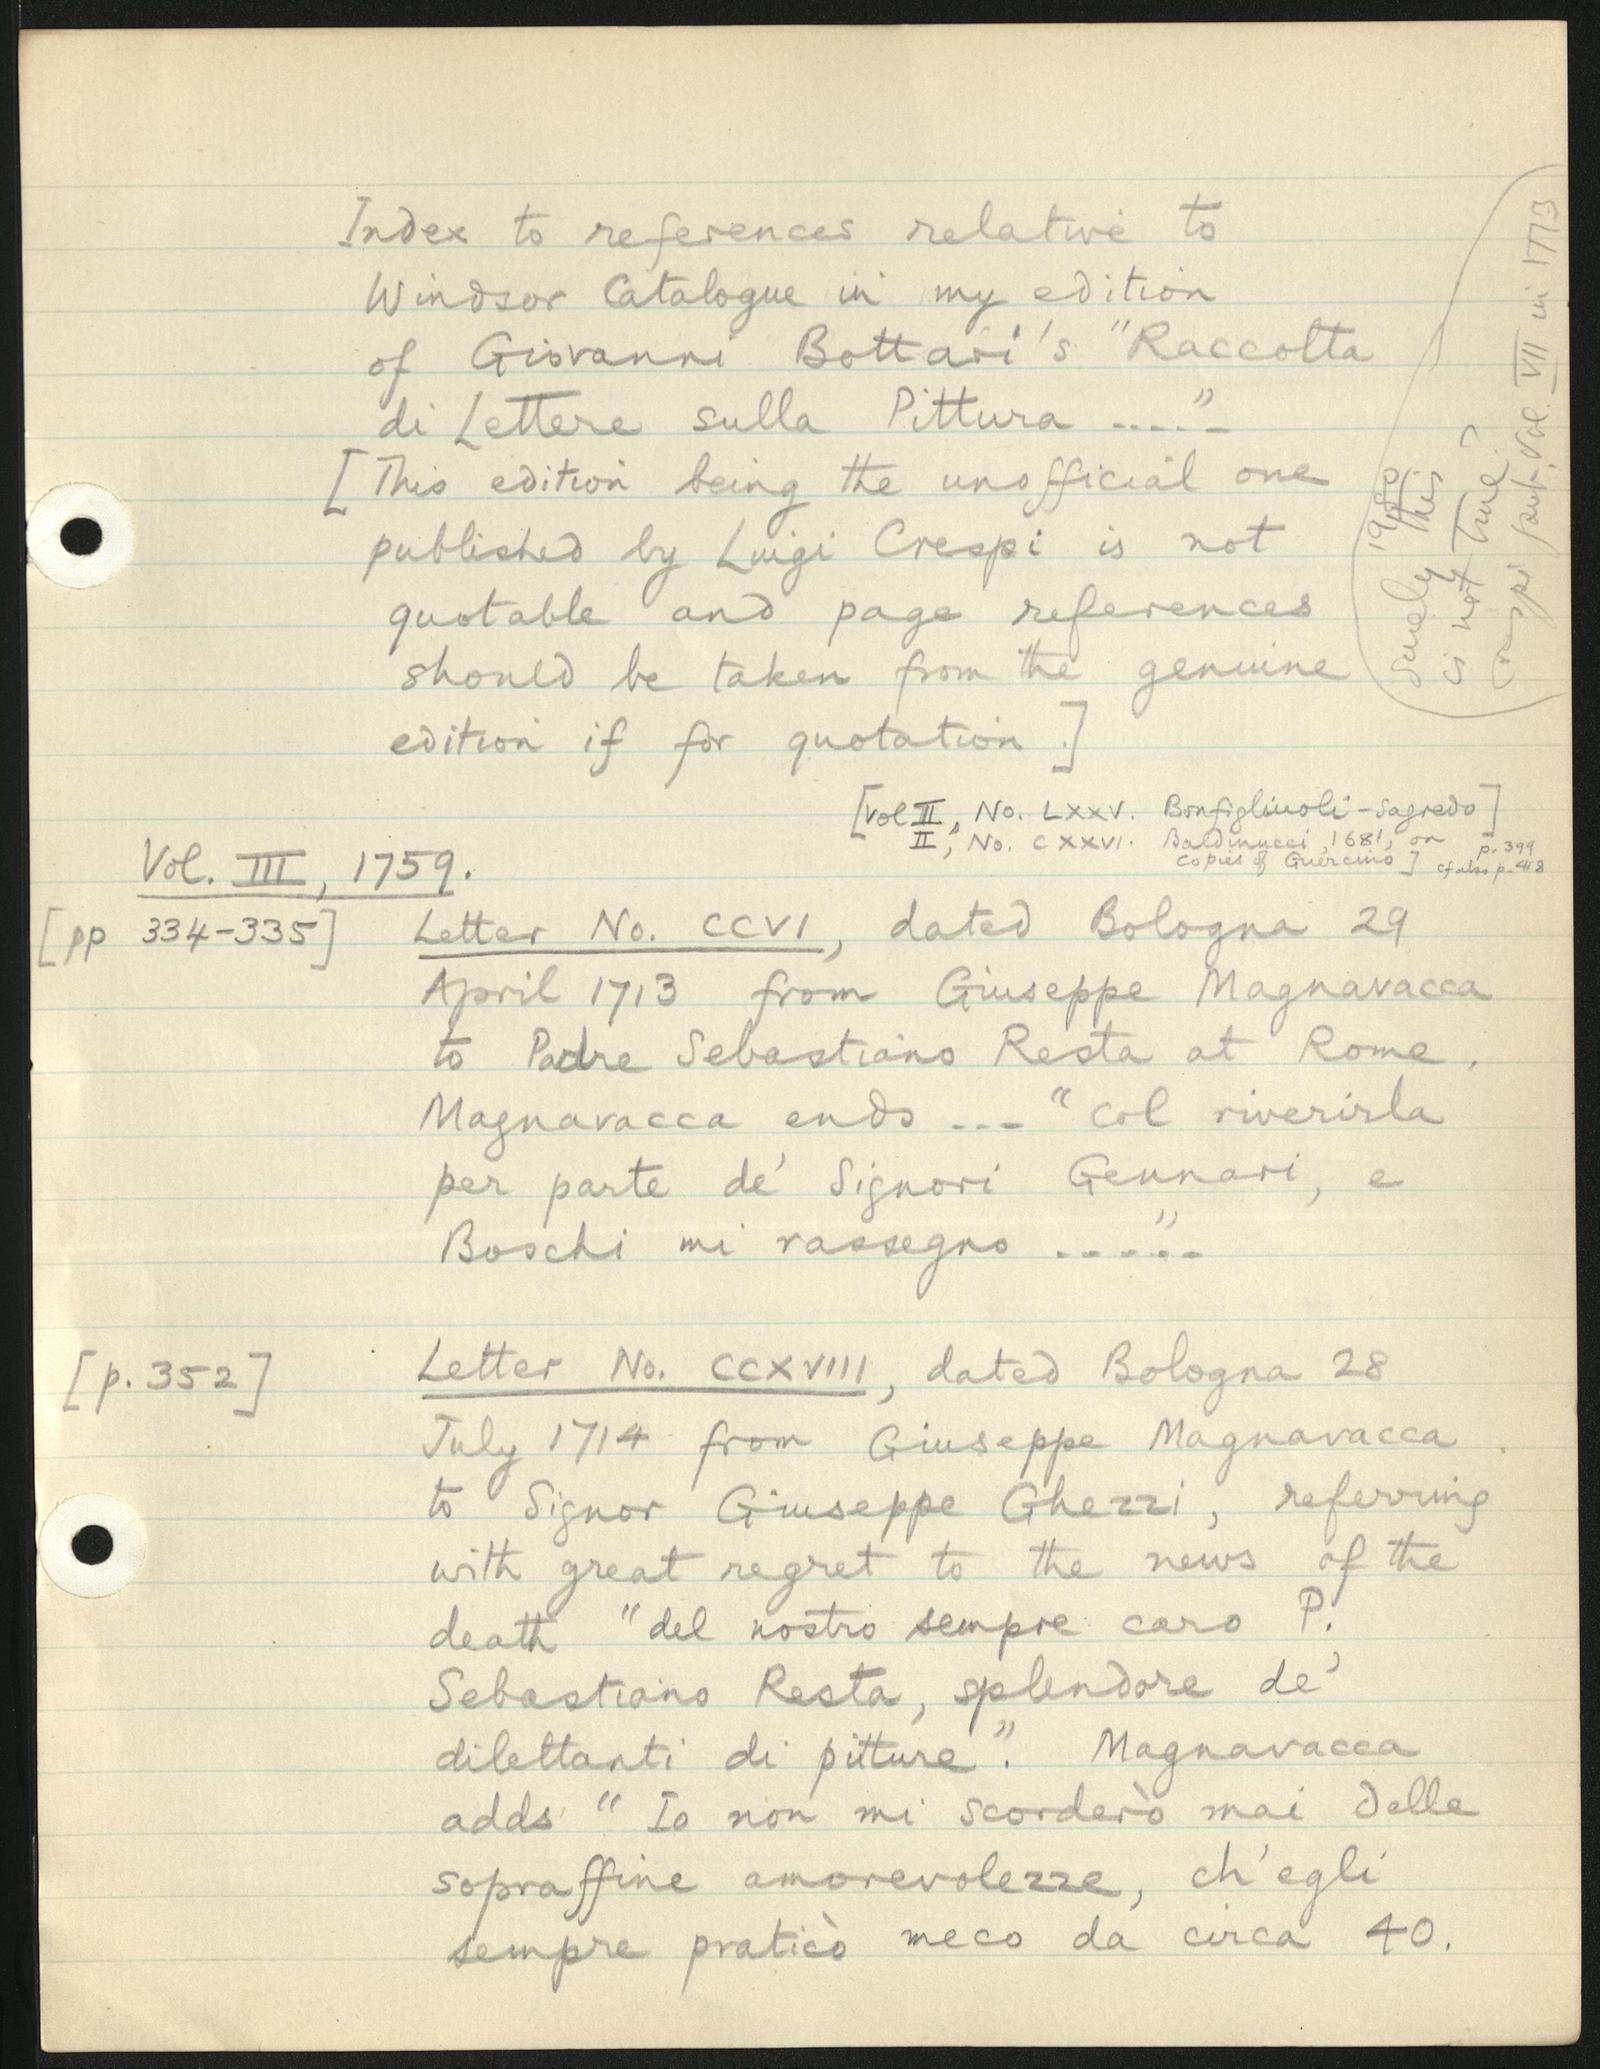 Index to references relative to
Windsor Catalogue in my edition
of Giovanni Bottari's "Raccolta
di Lettere sulla Pittura ....."
[This edition being the unofficial one
published by Luigi Crespi is not
quotable and page references
should be taken from the genuine
edition if for quotation.]
1980
Surely this
is not true?
Crespi publ. Vol. VII in 1773
[Vol II, No. LXXV. Bonfigliuoli-Sagredo]
II, No. CXXVI. Baldinucci, 1681, on p. 399
copies of Guercino] cf also p. 418
Vol. III, 1759.
[pp 334-335] Letter No. CCVI, dated Bologna 29
April 1713 from Giuseppe Magnavacca
to Padre Sebastiano Resta at Rome.
Magnavacca ends ... "col riverirla
per parte de' Signori Gennari, e
Boschi mi rassegno ....."
[p. 352] Letter No. CCXVIII, dated Bologna 28
July 1714 from Giuseppe Magnavacca
to Signor Giuseppe Ghezzi, referring
with great regret to the news of the
death "del nostro sempre caro P.
Sebastiano Resta, splendore de'
dilettanti di pitture". Magnavacca
adds "Io non mi scorderò mai delle
sopraffine amorevolezze, ch'egli
sempre praticò meco da circa 40.